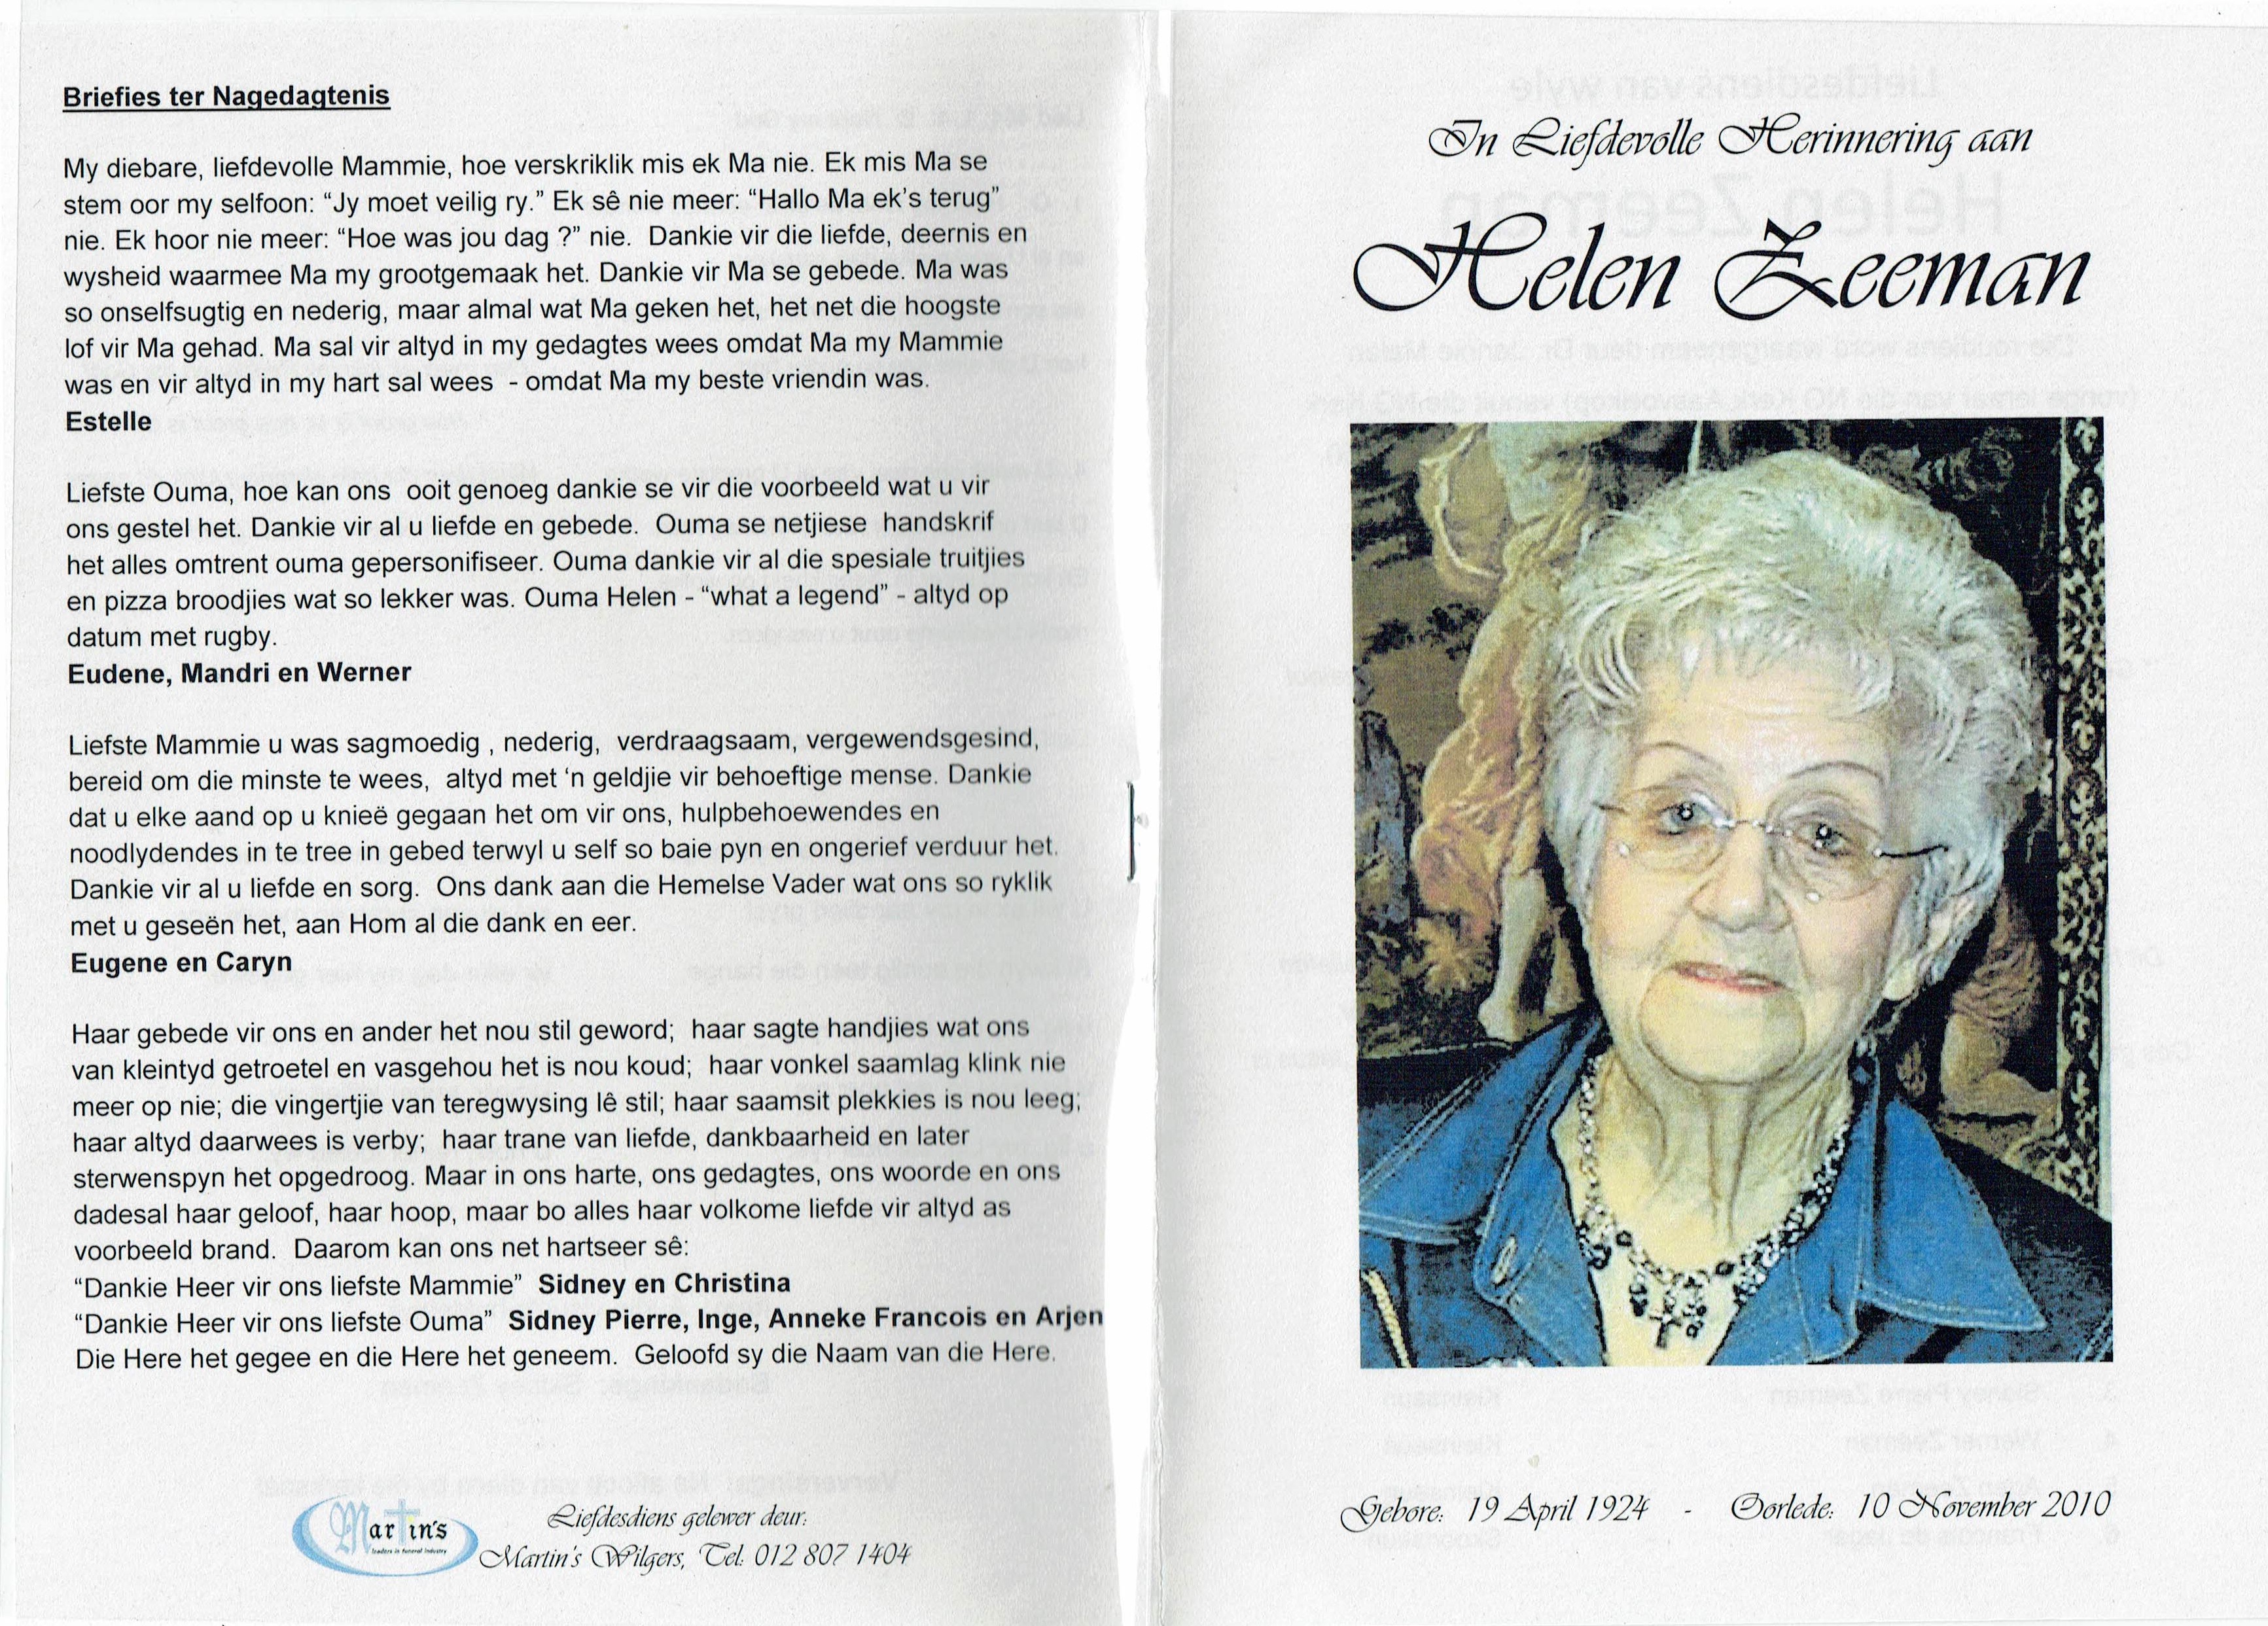 Briefies ter Nagedagtenis
My diebare, liefdevolle Mammie, hoe verskriklik mis ek Ma nie. Ek mis Ma se
stem oor my selfoon: “Jy moet veilig ry.” Ek sê nie meer: “Hallo Ma ek’s terug”
nie. Ek hoor nie meer: “Hoe was jou dag ?” nie. Dankie vir die liefde, deernis en
wysheid waarmee Ma my grootgemaak het. Dankie vir Ma se gebede. Ma was
so onselfsugtig en nederig, maar almal wat Ma geken het, het net die hoogste
lof vir Ma gehad. Ma sal vir altyd in my gedagtes wees omdat Ma my Mammie
was en vir altyd in my hart sal wees - omdat Ma my beste vriendin was.
Estelle
Liefste Ouma, hoe kan ons ooit genoeg dankie se vir die voorbeeld wat u vir
ons gestel het. Dankie vir al u liefde en gebede. Ouma se netjiese handskrif
het alles omtrent ouma gepersonifiseer. Ouma dankie vir al die spesiale truitjies
en pizza broodjies wat so lekker was. Ouma Helen - “what a legend” - altyd op
datum met rugby.
Eudene, Mandri en Werner
Liefste Mammie u was sagmoedig , nederig, verdraagsaam, vergewendsgesind,
bereid om die minste te wees, altyd met ‘n geldjie vir behoeftige mense. Dankie
dat u elke aand op u knieë gegaan het om vir ons, hulpbehoewendes en
noodlydendes in te tree in gebed terwyl u self so baie pyn en ongerief verduur het.
Dankie vir al u liefde en sorg. Ons dank aan die Hemelse Vader wat ons so ryklik
met u geseën het, aan Hom al die dank en eer.
Eugene en Caryn
Haar gebede vir ons en ander het nou stil geword; haar sagte handjies wat ons
van kleintyd getroetel en vasgehou het is nou koud; haar vonkel saamlag klink nie
meer op nie; die vingertjie van teregwysing lê stil; haar saamsit plekkies is nou leeg;
haar altyd daarwees is verby; haar trane van liefde, dankbaarheid en later
sterwenspyn het opgedroog. Maar in ons harte, ons gedagtes, ons woorde en ons
dadesal haar geloof, haar hoop, maar bo alles haar volkome liefde vir altyd as
voorbeeld brand. Daarom kan ons net hartseer sê:
“Dankie Heer vir ons liefste Mammie” Sidney en Christina
“Dankie Heer vir ons liefste Ouma” Sidney Pierre, Inge, Anneke Francois en Arjen
Die Here het gegee en die Here het geneem. Geloofd sy die Naam van die Here.
Martin's
leaders in funeral industry
Liefdesdiens gelewer deur:
Martin's Wilgers, Tel: 012 807 1404
In Liefdevolle Herinnering aan
Helen Zeeman
Gebore: 19 April 1924 - Oorlede: 10 November 2010